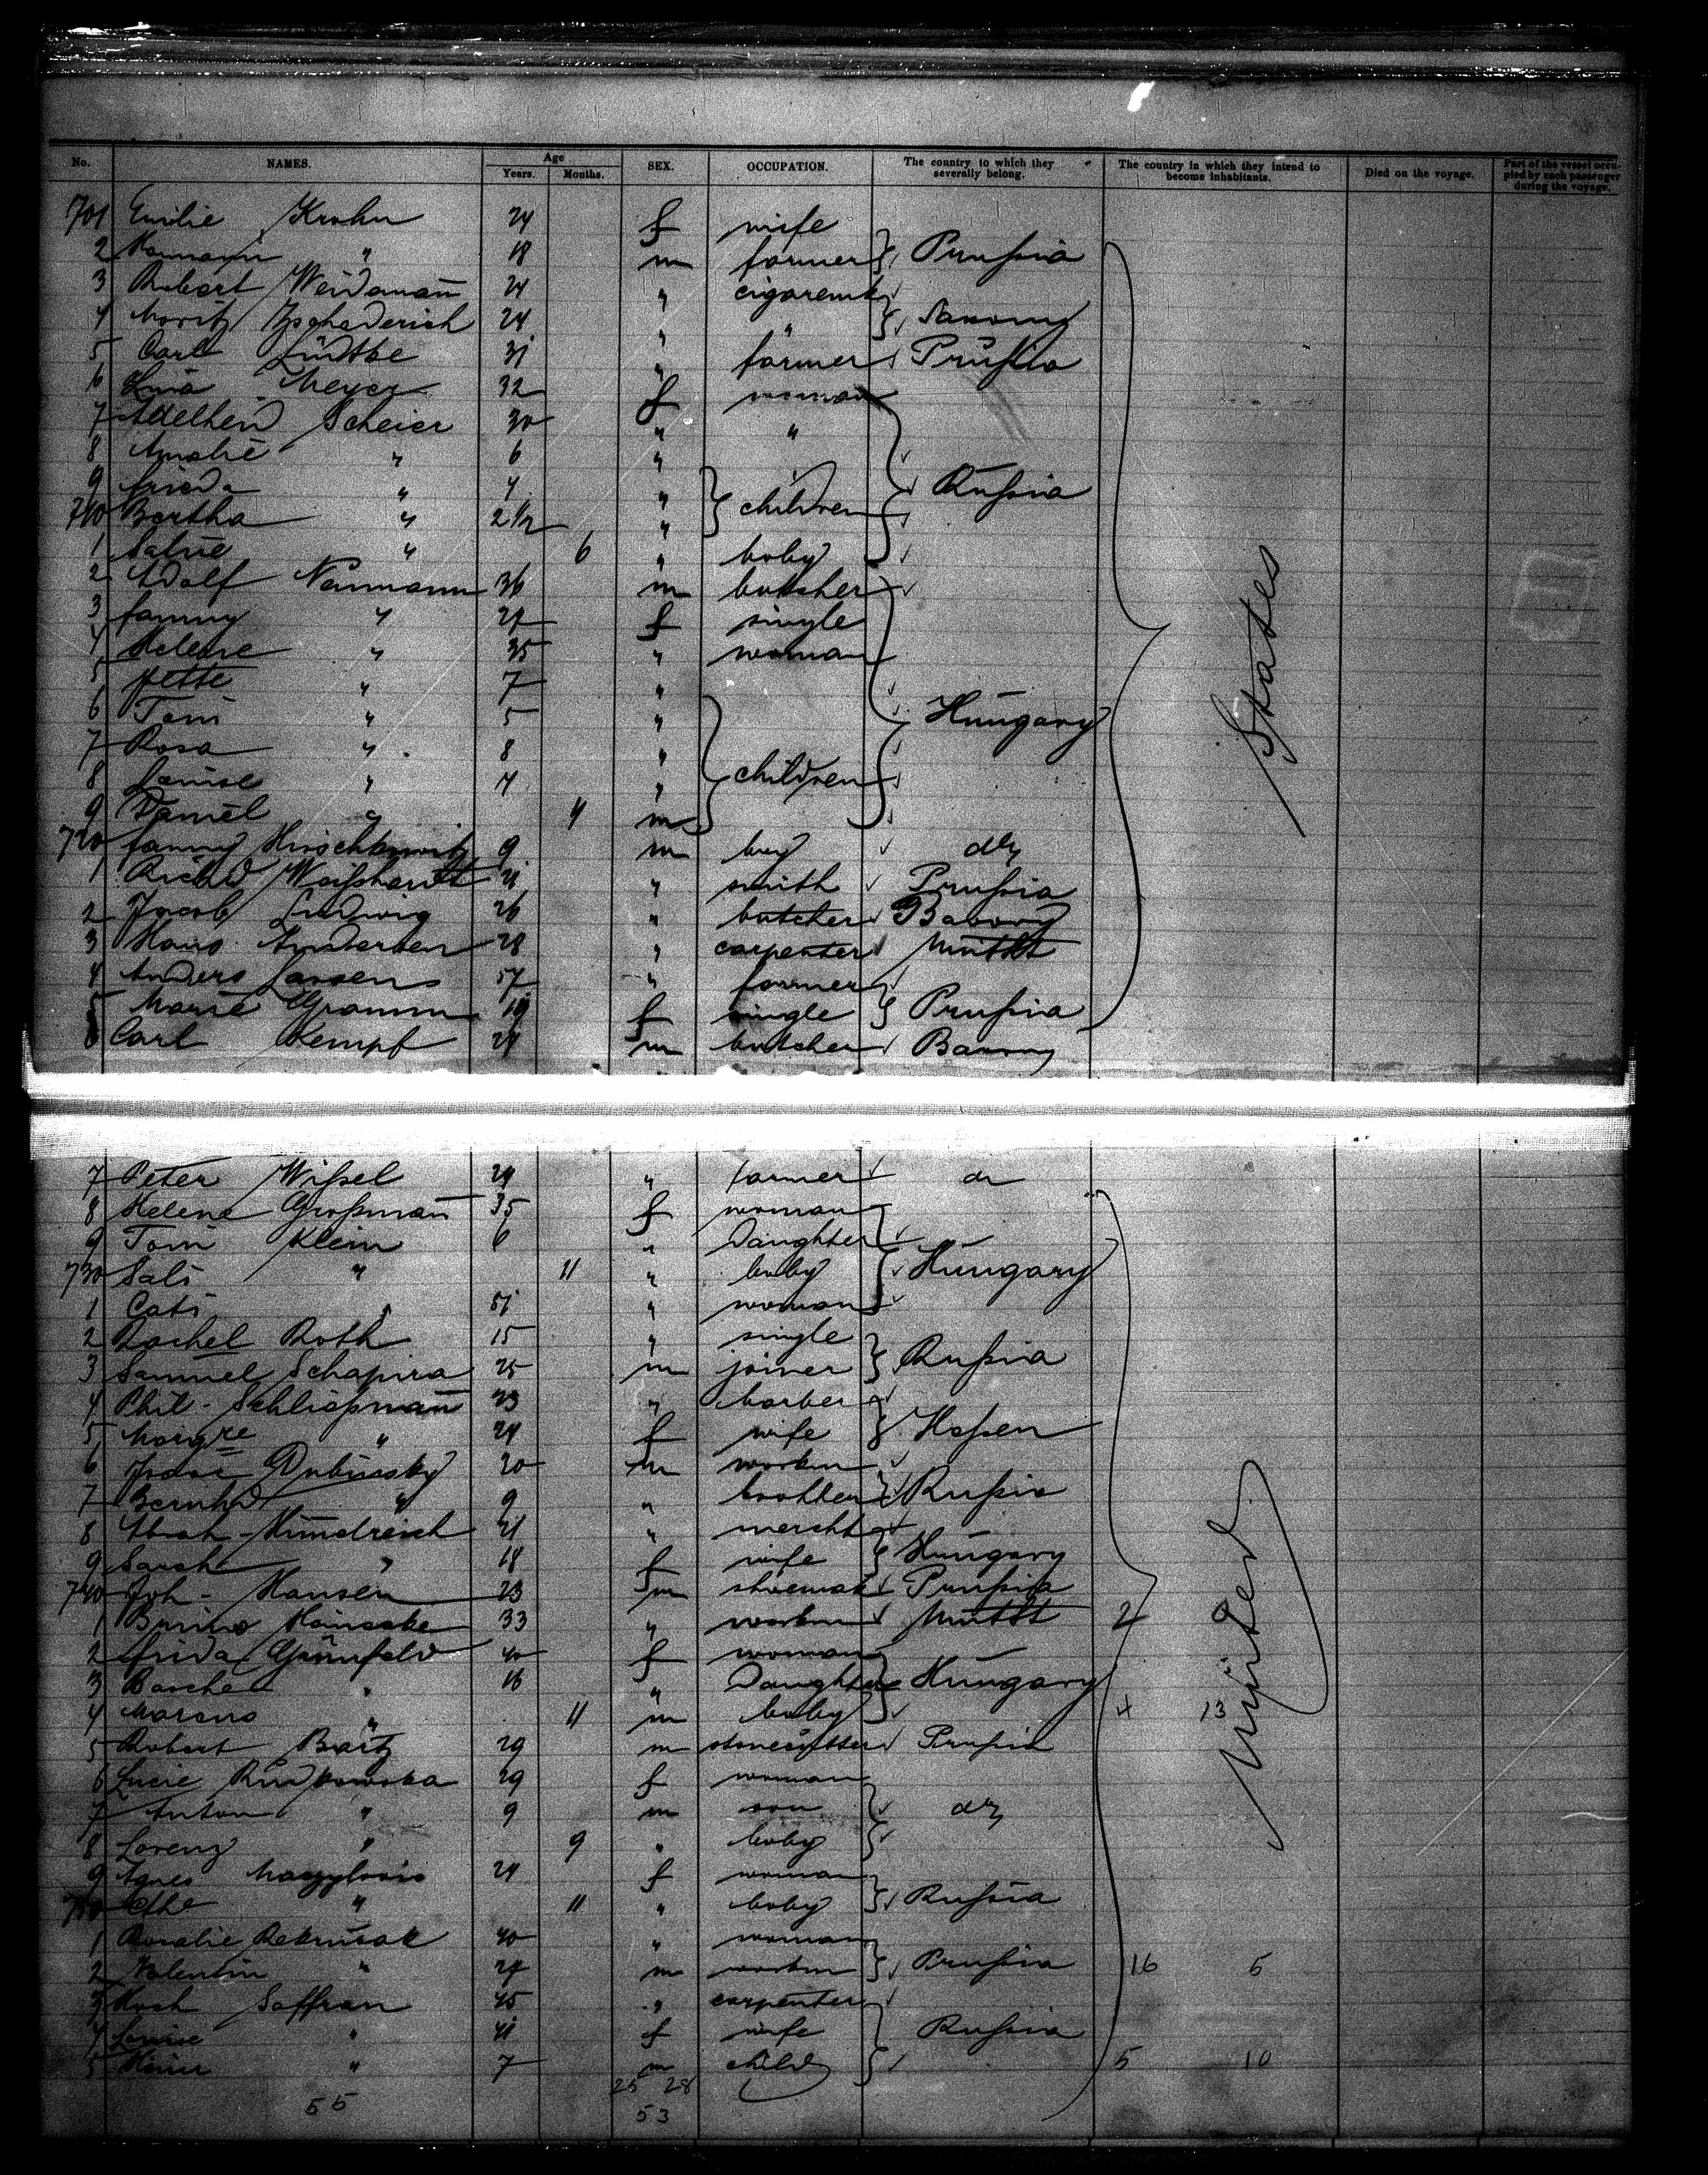 No. NAMES. Age Years. Months. SEX. OCCUPATION. The country to which they severally belong. The country in which they intend to become inhabitants. Died on the voyage. Part of the vessel occupied by each passenger during the voyage.
701 Emilie Krohn 24 f wife
2 Hermann " 18 m farmer Prussia
3 Robert Weidemann 24 " cigaremk
4 Moritz Zschaderich 24 " " Saxony
5 Carl Lüdtke 31 " farmer Prussia
6 Lina Meyer 32 f woman
7 Adelheid Scheier 30 " "
8 Amalie " 6 "
9 Frieda " 4 " children Russia
710 Bertha " 2 1/2 "
1 " 6 " baby
2 Adolf Neumann 36 m butcher
3 Fanny " f single
4 Helene " 35 " woman
5 Jette " 7 "
6 Toni " 5 " Hungary
7 Rosa " 8 "
8 Louise " 4 " children
9 Daniel " 4 m
720 Fanny Hirschkowitz 9 m boy do
1 Richd Weisshardt 21 " smith Prussia
2 Jacob Ludwig 26 " butcher Bavony
3 Hans Andersen 28 " carpenter
4 Anders Larsen 57 " farmer
5 Marie Gramm 19 f single Prussia
6 Carl Kempf 24 m butcher Bavony
States
7 Peter Wissel 24 " farmer do
8 Helene Grossmann 35 f woman
9 Toni Klein 6 " Daughter
730 Sali " 11 " baby Hungary
1 Cati " 51 " woman
2 Rachel Roth 15 " single
3 Samuel Schapira 25 m joiner Russia
4 Phil. 23 " barber
5 " 24 f wife Hessen
6 Isaac Dubinsky 20 m workm
7 Bernhd " 9 " brother Russia
8 Abrah. 21 " mercht
9 Sarah " 18 f wife Hungary
740 Joh. Hansen 23 m shoemak Prussia
1 Bruno 33 " workm 2 0
2 Frida Grünfeld 40 f woman
3 " 16 " Daughter Hungary
4 " 11 m baby 4 13
5 Robert Bartz 29 m stonecutter Prussia
6 Lucie 29 f woman
7 Anton " 9 m son do
8 Lorenz " 9 " baby
9 Agnes 24 f woman
750 " 11 " baby Russia
1 Rosalie 40 " woman
2 Valentin " 24 m workm Prussia 16 6
3 Saffran 45 " carpenter
4 Louise " 41 f wife Russia
5 " 7 m child 5 10
United
25 28
55 53